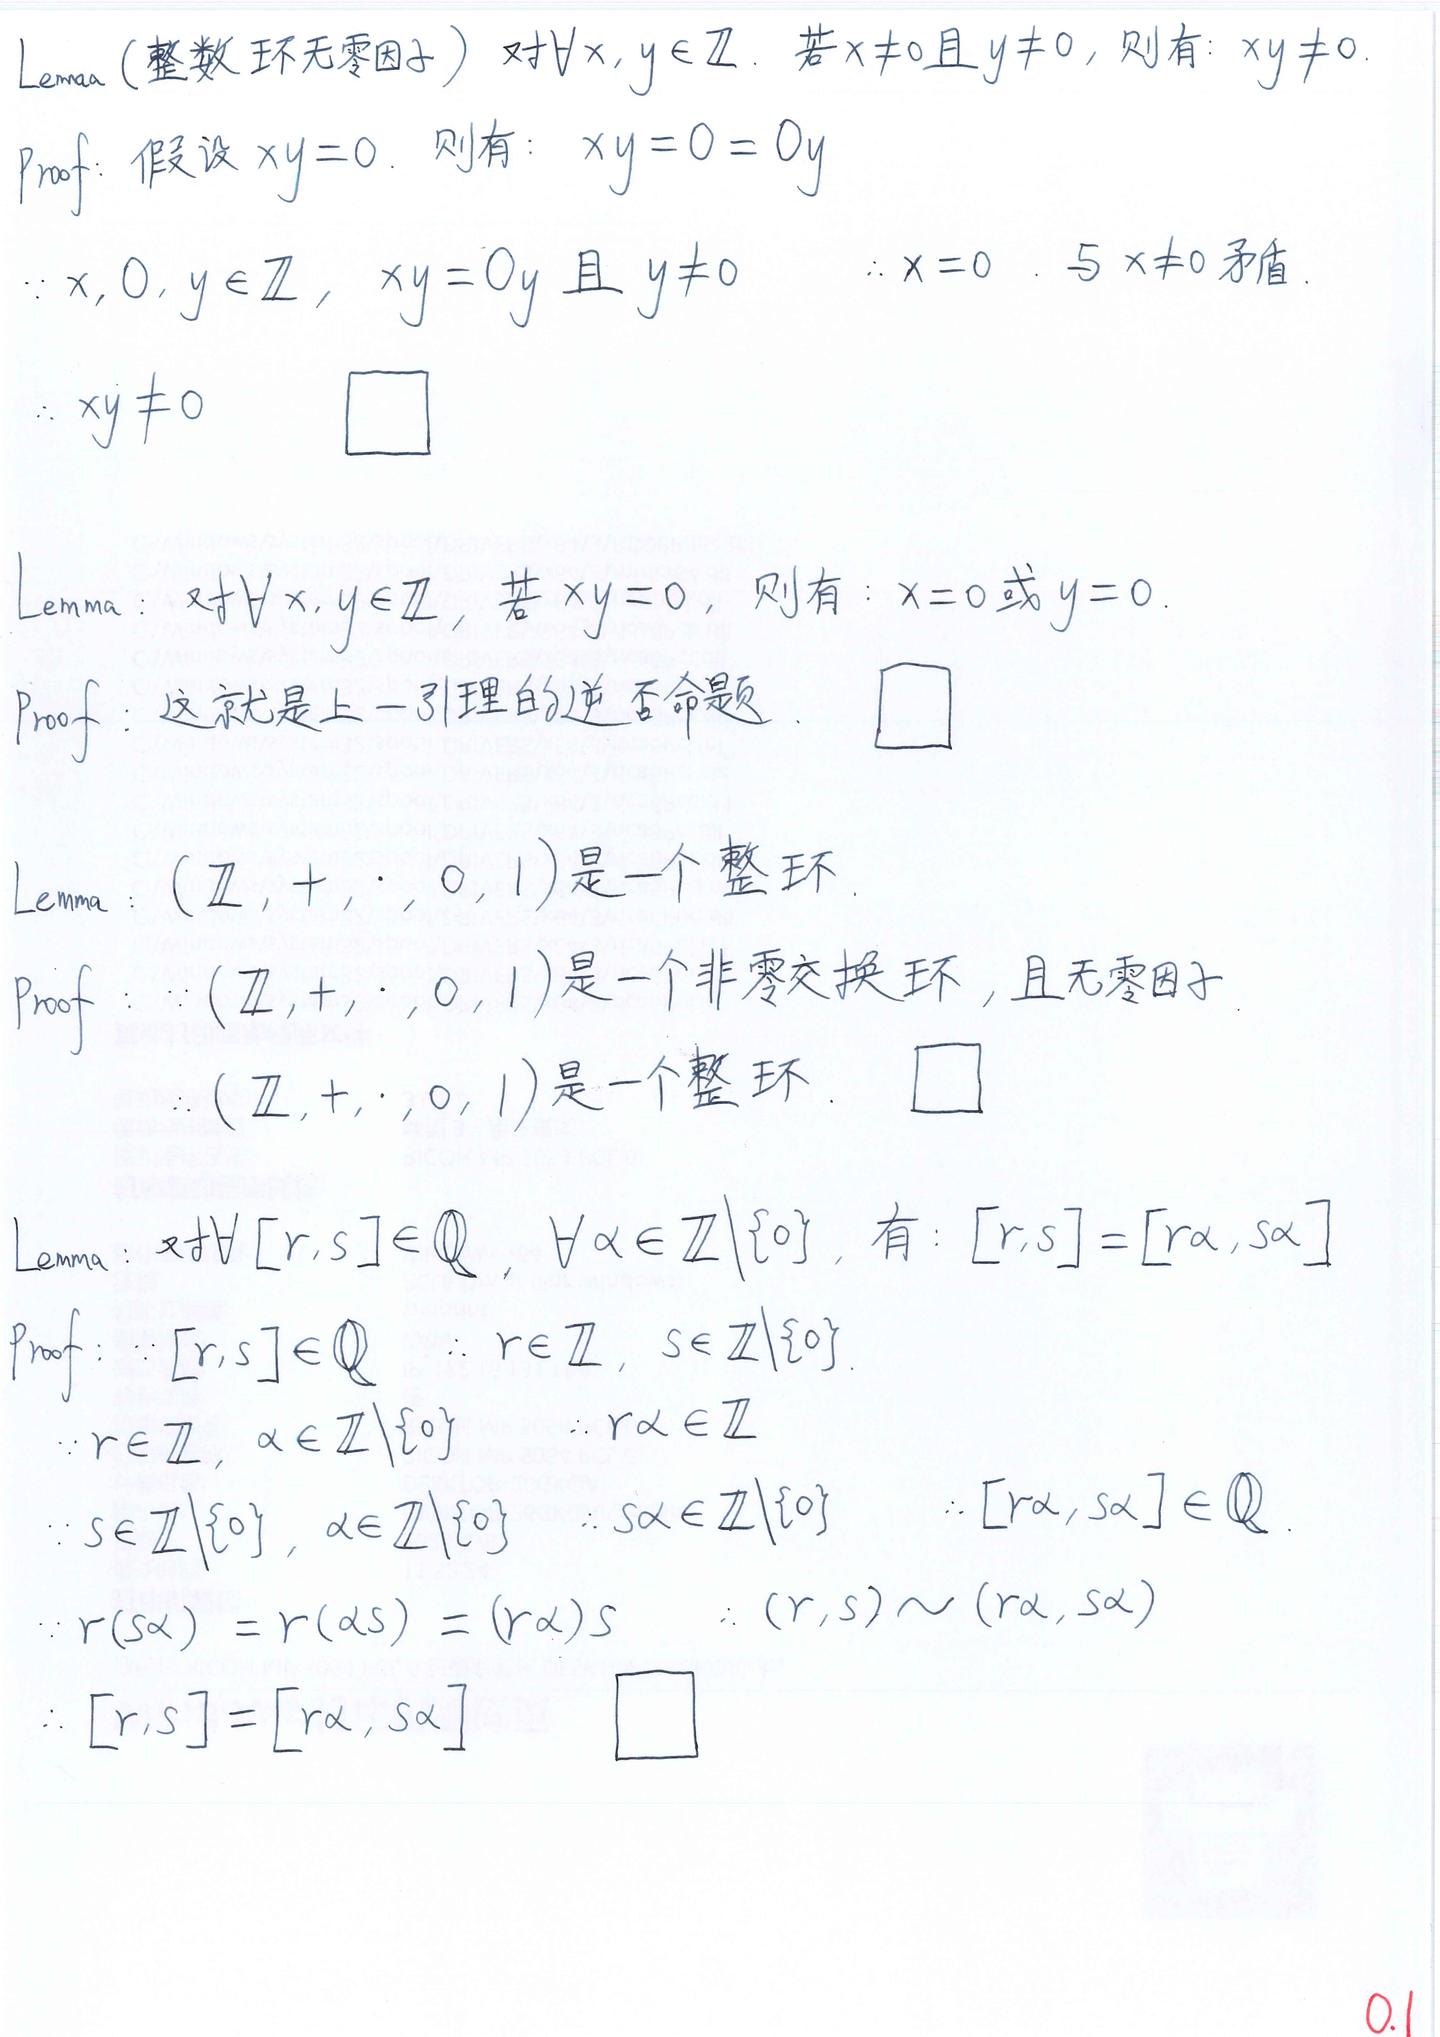 Lemma (整数环无零因子) 对∀x, y∈ℤ. 若x≠0且y≠0, 则有: xy≠0.
Proof: 假设 xy=0. 则有: xy=0=0y
∵ x, 0, y∈ℤ, xy=0y 且 y≠0 ∴ x=0. 与 x≠0 矛盾.
∴ xy≠0 □
Lemma: 对∀ x, y∈ℤ, 若 xy=0, 则有: x=0 或 y=0.
Proof: 这就是上一引理的逆否命题 □
Lemma: (ℤ, +, ·, 0, 1) 是一个整环.
Proof: ∵ (ℤ, +, ·, 0, 1) 是一个非零交换环, 且无零因子.
∴ (ℤ, +, ·, 0, 1) 是一个整环. □
Lemma: 对∀[r, s]∈ℚ, ∀α∈ℤ\{0}, 有: [r, s] = [rα, sα]
Proof: ∵ [r, s]∈ℚ ∴ r∈ℤ, s∈ℤ\{0}.
∵ r∈ℤ, α∈ℤ\{0} ∴ rα∈ℤ
∵ s∈ℤ\{0}, α∈ℤ\{0} ∴ sα∈ℤ\{0} ∴ [rα, sα]∈ℚ.
∵ r(sα) = r(αs) = (rα)s ∴ (r, s) ~ (rα, sα)
∴ [r, s] = [rα, sα] □
0.1